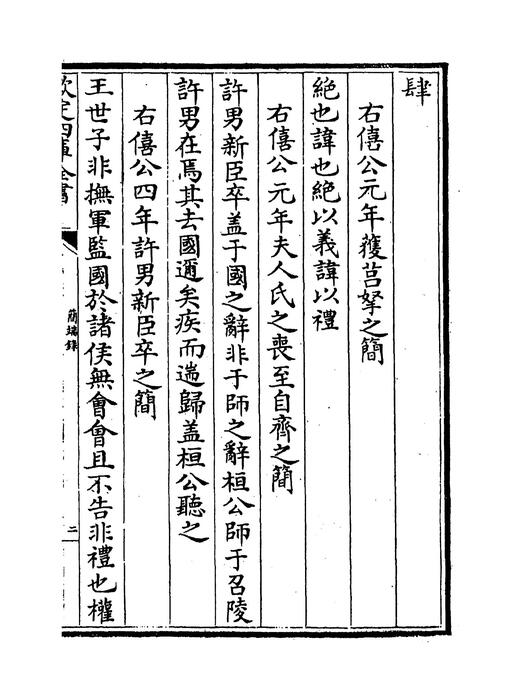 肆
右僖公元年獲莒挐之簡
絕也諱也絕以義諱以禮
右僖公元年夫人氏之喪至自齊之簡
許男新臣卒盖于國之辭非于師之辭桓公師于召陵
許男在焉其去國邇矣疾而遄歸盖桓公聽之
右僖公四年許男新臣卒之簡
王世子非撫軍監國於諸侯無會會且不告非禮也權
欽定四庫全書
簡端錄
二